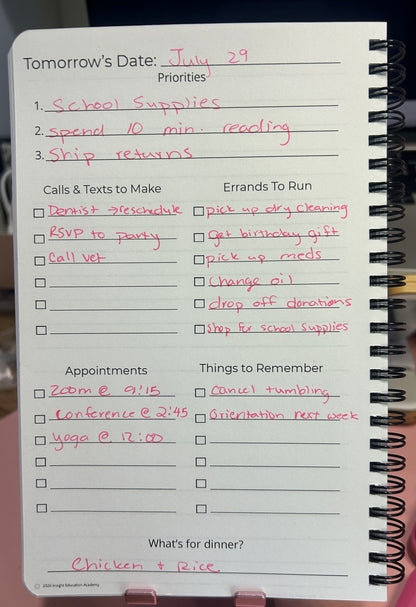 Tomorrow's Date: July 29
Priorities
1. School Supplies
2. spend 10 min. reading
3. Ship returns
Calls & Texts to Make
Dentist →reschedule
RSVP to party
Call vet
Errands To Run
pick up dry cleaning
Get birthday gift
pick up meds
Change oil
drop off donations
Shop for school supplies
Appointments
Zoom @ 9:15
Conference @ 2:45
Yoga @ 12:00
Things to Remember
Cancel tumbling
Orientation next week
What's for dinner?
Chicken + Rice
2024 Insight Education Academy